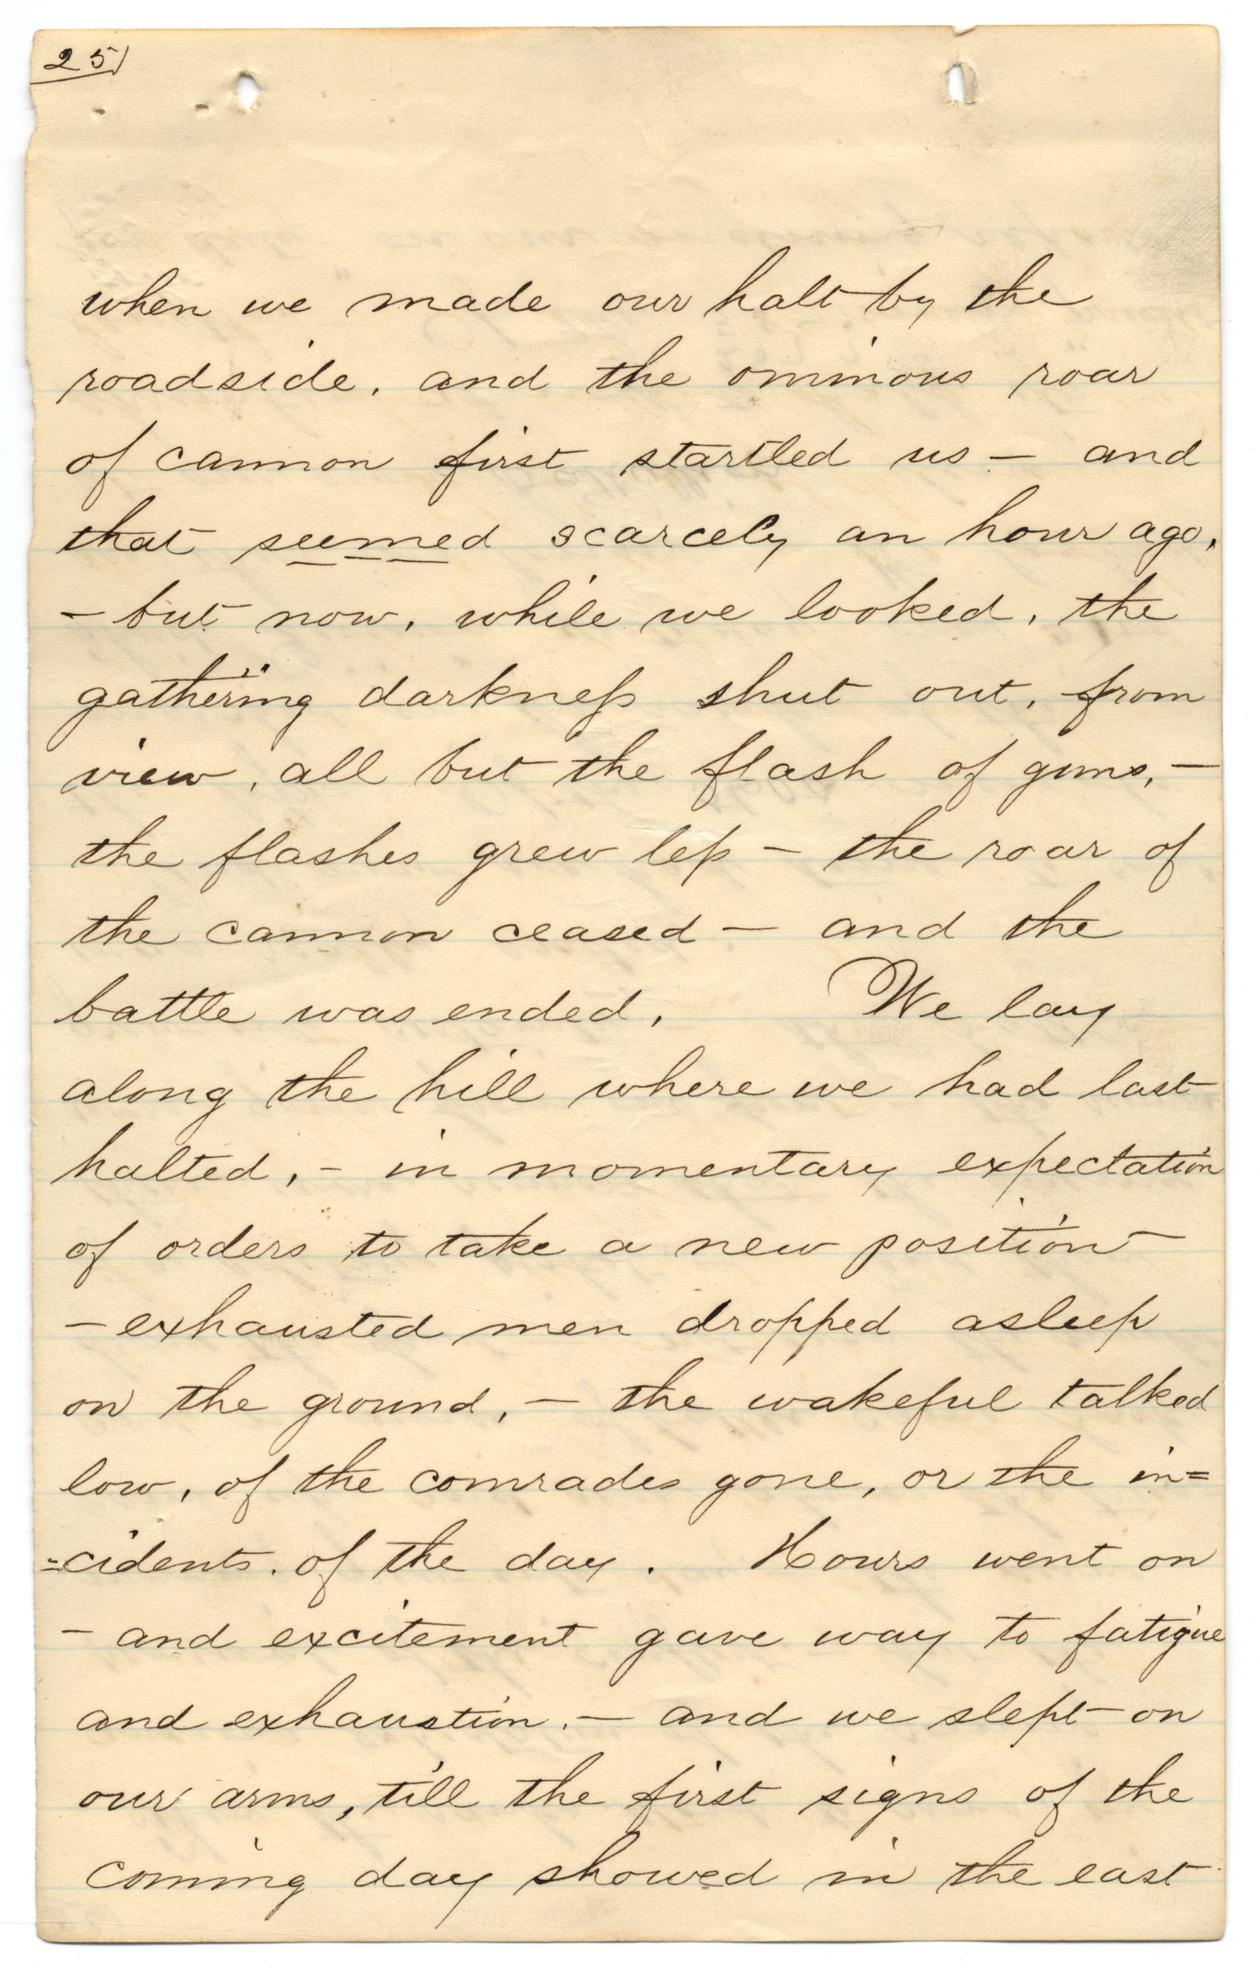 25)
when we made our halt by the
roadside, and the ominous roar
of cannon first startled us — and
that seemed scarcely an hour ago,
— but now, while we looked, the
gathering darkneſs shut out, from
view, all but the flash of guns, —
the flashes grew leſs — the roar of
the cannon ceased — and the
battle was ended. We lay
along the hill where we had last
halted, — in momentary expectation
of orders to take a new position —
— exhausted men dropped asleep
on the ground, — the wakeful talked
low, of the comrades gone, or the in=
=cidents. of the day. Hours went on
— and excitement gave way to fatigue
and exhaustion. — and we slept on
our arms, till the first signs of the
coming day showed in the east